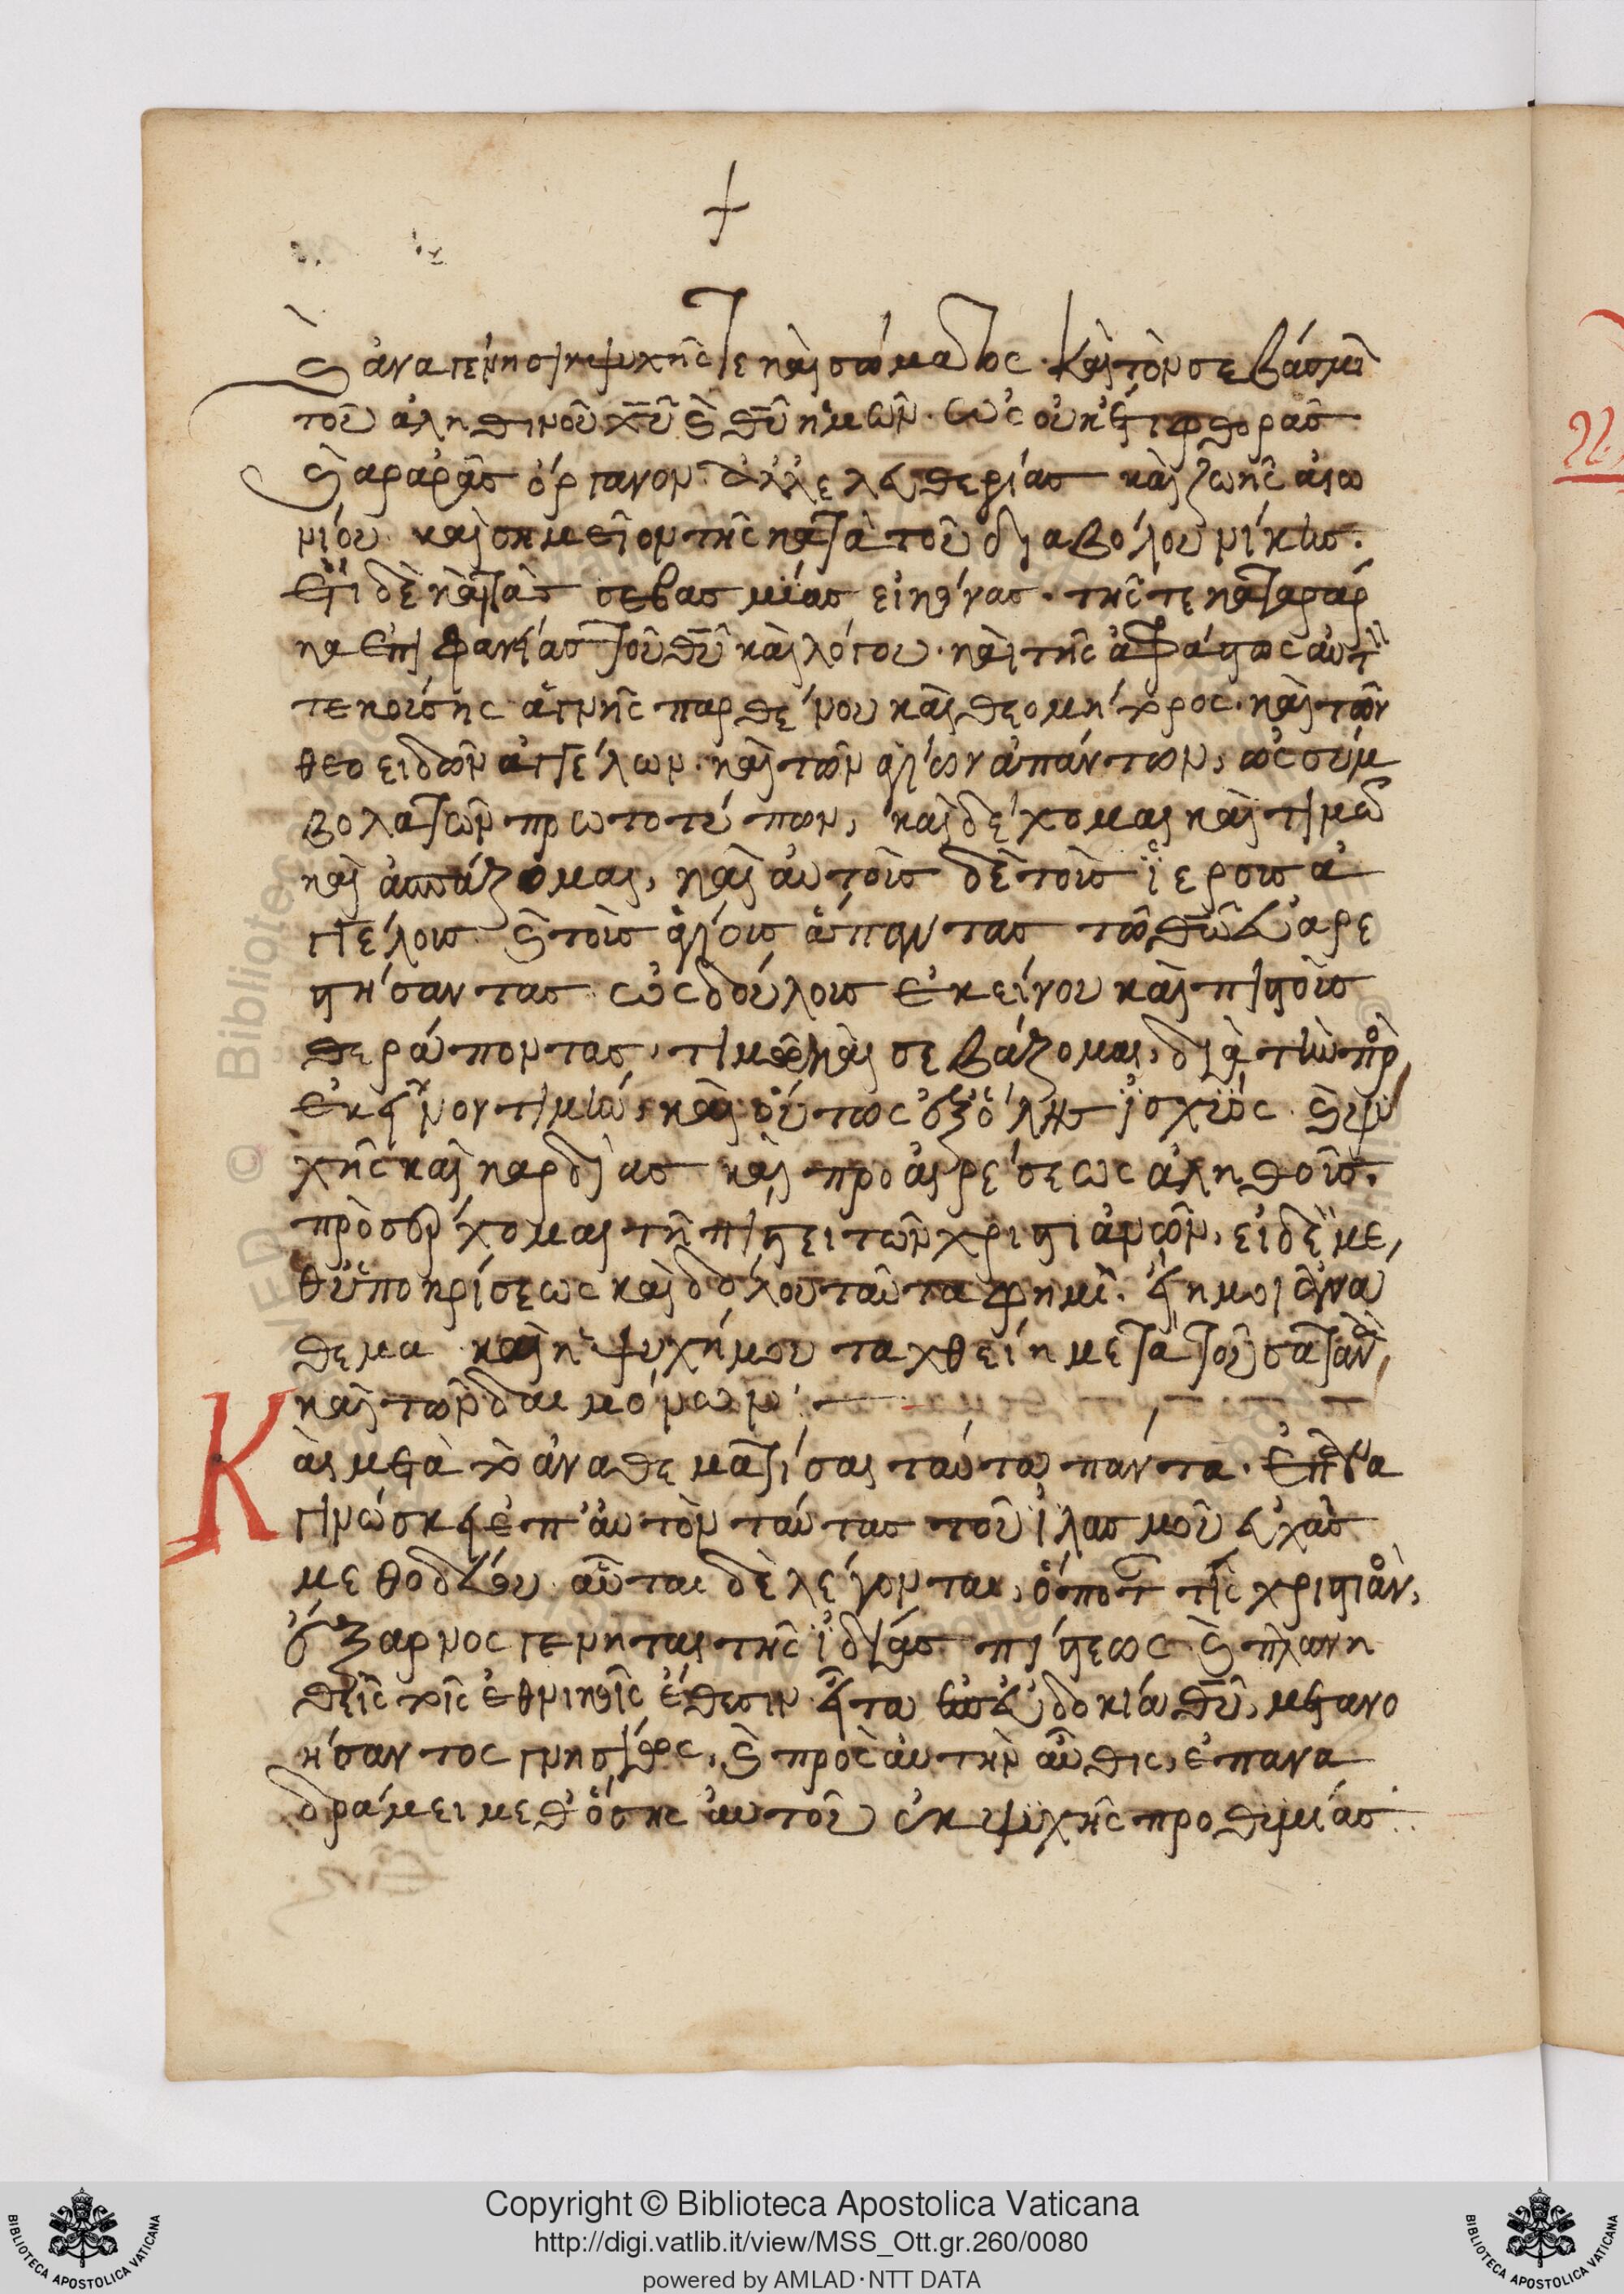 +
καὶ ἀναγέννησιν ψυχῆς τε καὶ σώματος. καὶ τὸν σεβάσμι
τοῦ ἀληθινοῦ χῦ καὶ θῦ ἡμῶν. ὡς οὐκέτι φθορᾶς
καὶ ἀρᾶς ὄργανον. ἀλλ' ἐλευθερίας καὶ ζωῆς αἰω
νίου. καὶ σημεῖον τῆς κατὰ τοῦ διαβόλου νίκης.
ἔτι δὲ καὶ τὰς σεβασμίας εἰκόνας. τῆς τε κατὰ σάρ
κα ἐπιφανείας τοῦ θῦ καὶ λόγου. καὶ τῆς ἀφράστως αὐτὸν
τεκούσης ἁγνῆς παρθένου καὶ θεομήτορος. καὶ τῶν
θεοειδῶν ἀγγέλων. καὶ τῶν ἁγίων ἁπάντων, ὡς σύμ
βολα τῶν πρωτοτύπων, καὶ δέχομαι καὶ τιμῶ
καὶ ἀσπάζομαι, καὶ αὐτοὺς δὲ τοὺς ἱεροὺς ἀγ
γέλους καὶ τοὺς ἁγίους ἅπαντας τῶ θῶ εὐαρε
στήσαντας ὡς δούλους ἐκείνου καὶ πιστοὺς
θεράποντας, τιμῶ καὶ σεβάζομαι, διὰ τὴν πρὸς
ἐκεῖνον τιμήν, καὶ οὕτως ἐξ ὅλης ἰσχύος. καὶ ψυ
χῆς καὶ καρδίας καὶ προαιρέσεως ἀληθοῦς.
προσέρχομαι τῆ πίστει τῶν χριστιανῶν. εἰ δὲ με
θ' ὑποκρίσεως καὶ δόλου ταῦτα φημὶ. εἴη μοι ἀνά
θεμα καὶ ἡ ψυχή μου ταχθείη μετὰ τοῦ σατανᾶ,
καὶ τῶν δαιμόνων:
Καὶ μετὰ τὸ ἀναθεματίσαι ταῦτα πάντα. ἐπανα
γινώσκει ἐπ' αὐτὸν ταύτας τοῦ ἱλασμοῦ εὐχὰς
μεθοδίου. αὗται δὲ λέγονται, ὁπότε τῆς χριστιανῶν,
ἔξαρνος γένηται τῆς ἰδίας πίστεως καὶ πλανη
θεὶς τοῖς ἐθνικοῖς ἔθεσιν εἶτα εὐδοκία θῦ, μετανο
ήσαντος γνησίως, καὶ πρὸς αὐτὴν αὖθις, ἐπανα
δράμει μεθ' ὅσης αὐτοῦ ἐκ ψυχῆς προθυμίας:
© Biblioteca Apostolica Vaticana
BIBLIOTECA APOSTOLICA VATICANA
Copyright © Biblioteca Apostolica Vaticana
http://digi.vatlib.it/view/MSS_Ott.gr.260/0080
powered by AMLAD·NTT DATA
BIBLIOTECA APOSTOLICA VATICANA